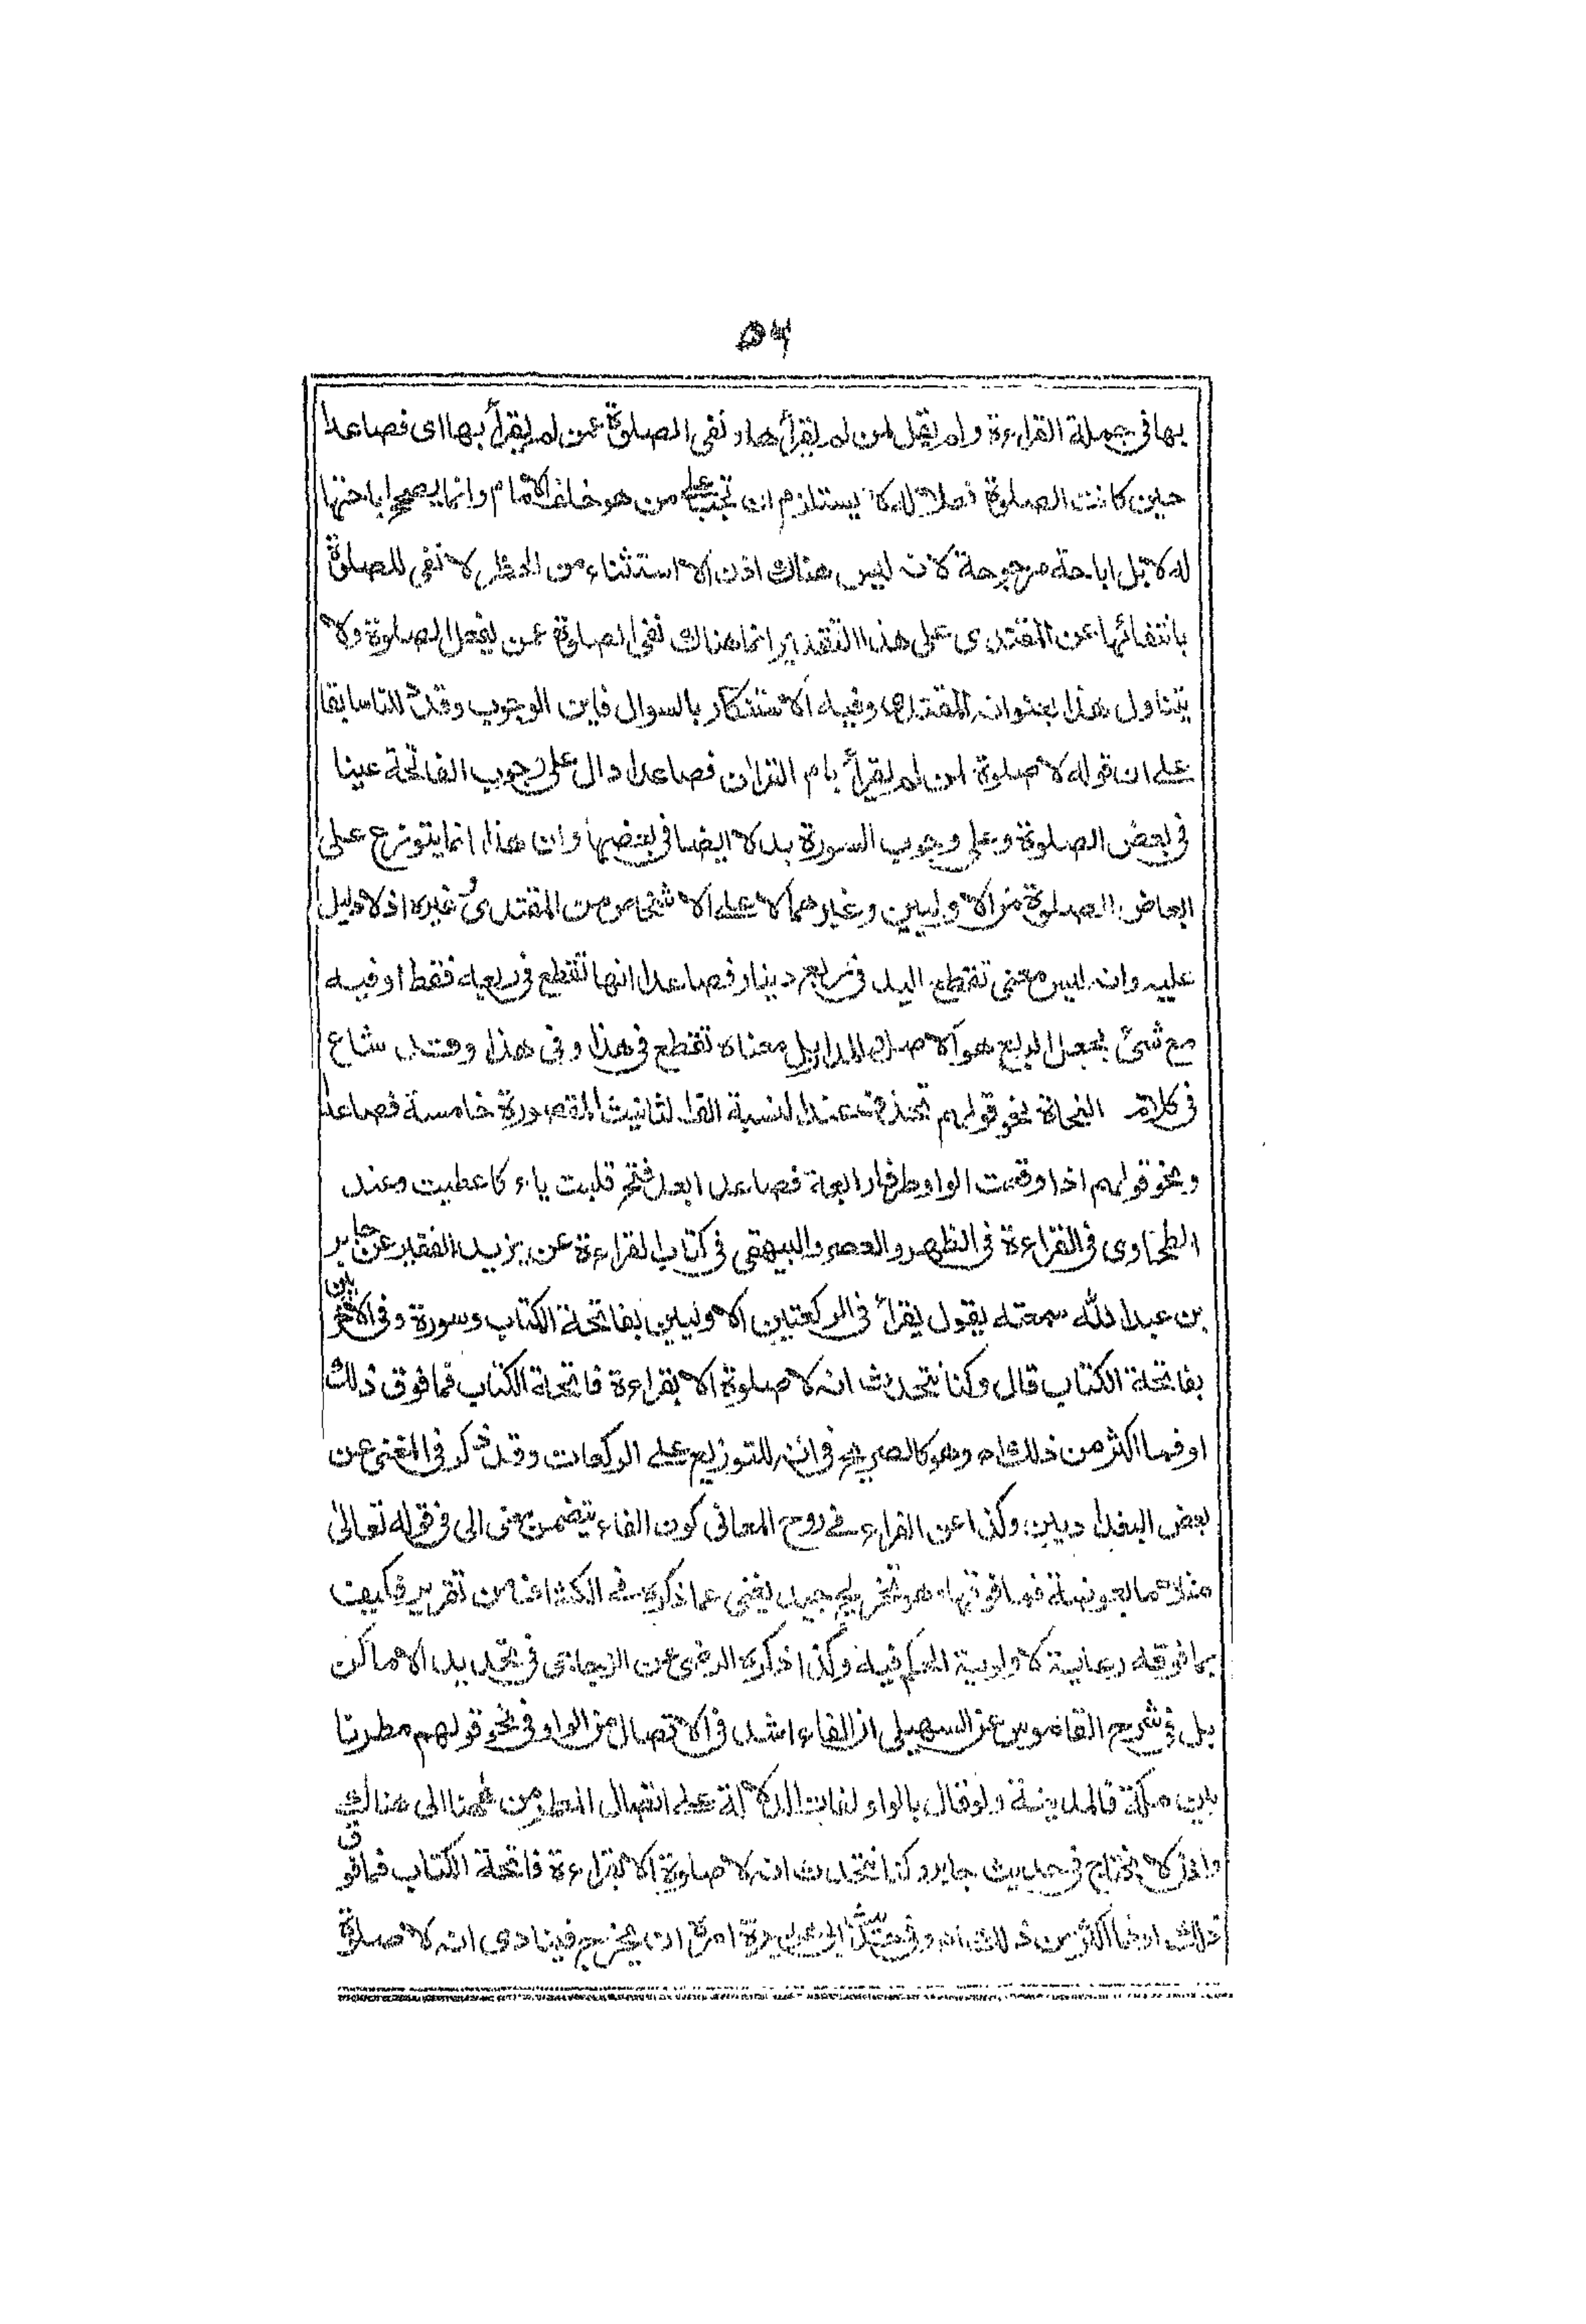 ۵۴
بها فی جملة القراءة ولم یقل لمن لم یقرأها و نفی الصلوة عمن لم یقرأ بها ای فصاعدا
حین کانت الصلوة فعلا له لا یستلزم ان تجب علی من هو خلف الامام وانما یصح اباحتها
له لا بل اباحة مرجوحة لانه لیس هناك اذن الا استثناء من الحظر لا نفی للصلوة
بانتفائها عن المقتدی علی هذا التقدیر انما هناك نفی الصلوة عمن یفعل الصلوة ولا
یتناول هذا بعنوان المقتدی وفیه الاستنکار بالسوال فاین الوجوب وقد دللنا سابقا
علے ان قوله لا صلوة لمن لم یقرأ بام القرآن فصاعدا دال علی وجوب الفاتحة عینا
فی بعض الصلوة وعلی وجوب السورة بدلا ایضا فی بعضها وان هذا انما یتوزع علی
ابعاض الصلوة من الاولیین وغیرهما لا علے الاشخاص من المقتدی وغیره اذ لا دلیل
علیه وانه لیس معنی تقطع الید فی ربع دینار فصاعدا انها تقطع فی ربعه فقط او فیه
مع شئ بجعل الربع هو الاصل والمدار بل معناه تقطع فی هذا و فی هذا وقد شاع
فی کلام النحاة نحو قولهم تحذف عند النسبة الف التانیث المقصورة خامسة فصاعدا
ونحو قولهم اذا وقعت الواو طرفا رابعة فصاعدا بعد فتح قلبت یاء کاعطیت وعند
الطحاوی فی القراءة فی الظهر والعصر والبیهقی فی کتاب القراءة عن یزید الفقیر عن جابر
بن عبد الله سمعته یقول یقرأ فی الرکعتین الاولیین بفاتحة الکتاب وسورة وفی الاخریین
بفاتحة الکتاب قال وکنا نتحدث انه لا صلوة الا بقراءة فاتحة الکتاب فما فوق ذلك
او فما اکثر من ذلك اه وهو کالصریح فی انه للتوزیع علے الرکعات وقد ذکر فی المغنی عن
بعض البغدادیین وکذا عن الفراء فے روح المعانی کون الفاء یتضمن معنی الی فی قوله تعالیٰ
مثلا ما بعوضة فما فوقها وهو تخریج جید یغنی عما ذکره فے الکشاف من تقریر فکیف
بما فوقه رعایة لاولویة الحکم فیه وکذا ذکره الرضی عن الزجاجی فی تحدید الاماکن
بل فی شرح القاموس عن السهیلی ان الفاء اشد فی الاتصال من الواو وفی نحو قولهم مطرنا
بین مکة فالمدینة ولو قال بالواو لفات الدلالة علے اتصال المطر من ههنا الی هناك
واذن لا یحتاج فی حدیث جابر وکنا نتحدث انه لا صلوة الا بقراءة فاتحة الکتاب فما فوق
ذلك او فما اکثر من ذلك اه وفی حدیث ابی هریرة امره ان یخرج فینادی انه لا صلوة